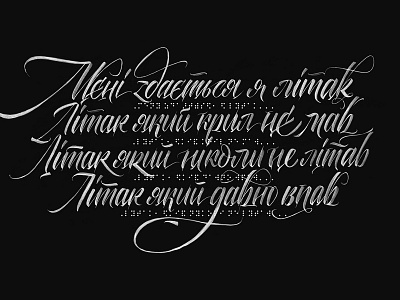 Мені здається я літак
Літак який крил не мав
Літак який ніколи не літав
Літак який давно впав